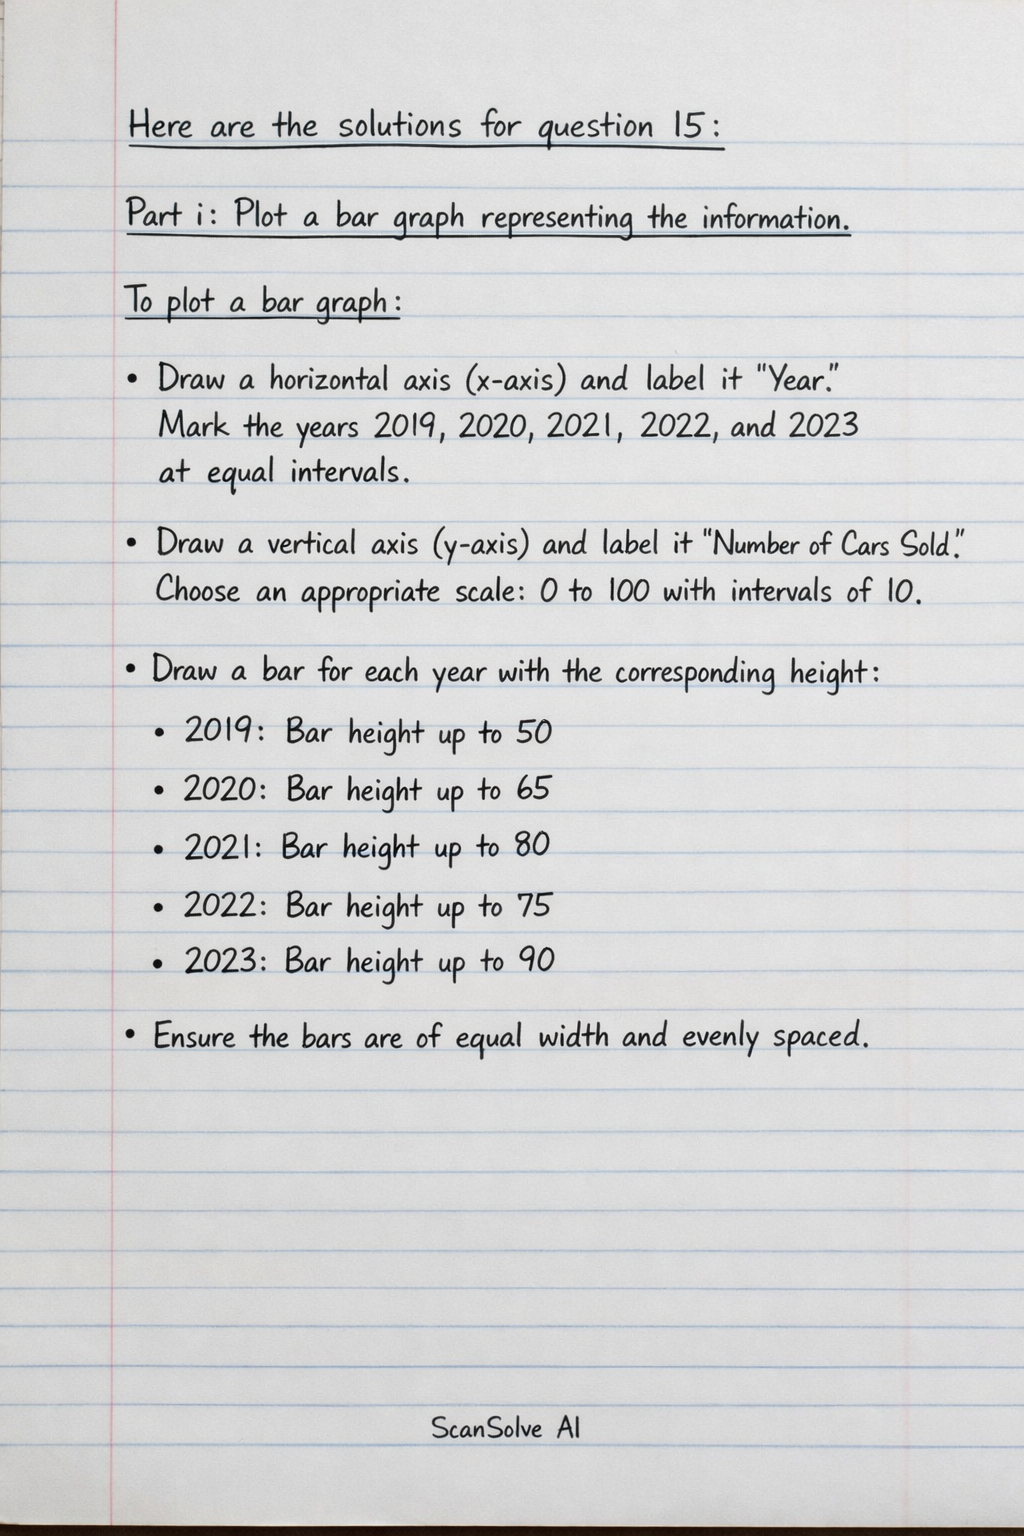 Here are the solutions for question 15:
Part i: Plot a bar graph representing the information.
To plot a bar graph:
• Draw a horizontal axis (x-axis) and label it "Year."
Mark the years 2019, 2020, 2021, 2022, and 2023
at equal intervals.
• Draw a vertical axis (y-axis) and label it "Number of Cars Sold."
Choose an appropriate scale: 0 to 100 with intervals of 10.
• Draw a bar for each year with the corresponding height:
• 2019: Bar height up to 50
• 2020: Bar height up to 65
• 2021: Bar height up to 80
• 2022: Bar height up to 75
• 2023: Bar height up to 90
• Ensure the bars are of equal width and evenly spaced.
ScanSolve AI